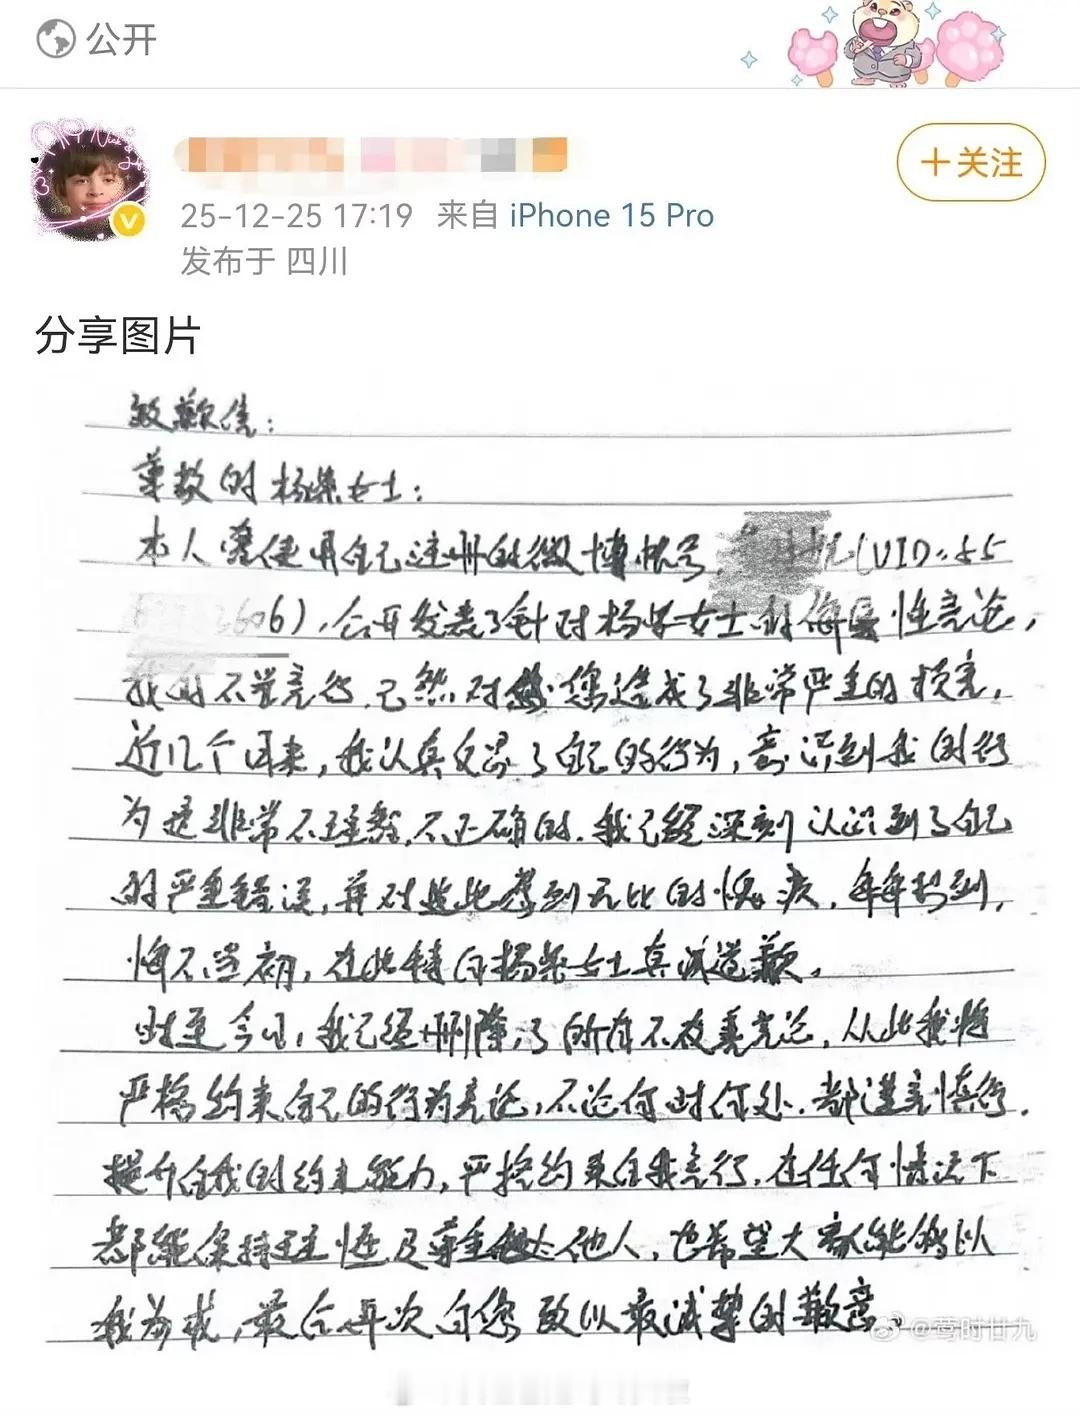 公开
25-12-25 17:19 来自 iPhone 15 Pro
发布于 四川
+关注
分享图片
致歉信：
尊敬的杨紫女士：
本人曾使用自己注册的微博帐号，“ 忧(UID:55
3606)，公开发表了针对杨紫女士的侮辱性言论，
我的不当言行，已然对您造成了非常严重的损害。
近几个月来，我认真反思了自己的行为，意识到我的行
为是非常不理智，不正确的。我已经深刻认识到了自己
的严重错误，并对此感到无比的愧疚，每每想到，
悔不当初，在此特向杨紫女士真诚道歉。
时至今日，我已经删除了所有不友善言论，从此我将
严格约束自己的行为言论，不论何时何处，都谨言慎行。
提升自我的约束能力，严格约束自我言行，在任何情况下
都能保持理性及尊重他人，也希望大家能够以
我为戒，最后再次向您致以最诚挚的歉意。
@莺时廿九